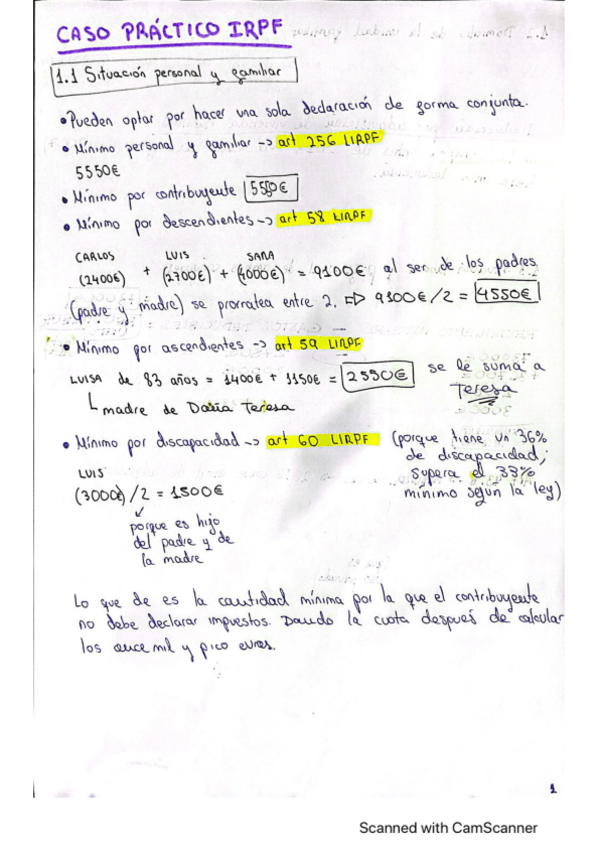 CASO PRÁCTICO IRPF
1.1 Situación personal y familiar
• Pueden optar por hacer una sola declaración de forma conjunta.
• Mínimo personal y familiar -> art 256 LIRPF
5550€
• Mínimo por contribuyente 5550€
• Mínimo por descendientes -> art 58 LIRPF
CARLOS LUIS SARA
(2400€) + (2700€) + (4000€) = 9100€ al ser de los padres
(padre y madre) se prorratea entre 2. => 9100€/2 = 4550€
• Mínimo por ascendientes -> art 59 LIRPF
LUISA de 83 años = 1400€ + 1150€ = 2550€ se le suma a
Teresa
madre de Daría Teresa
• Mínimo por discapacidad -> art 60 LIRPF (porque tiene un 36%
de discapacidad,
supera el 33%
mínimo según la ley)
LUIS
(3000€)/2 = 1500€
porque es hijo
del padre y de
la madre
Lo que de es la cantidad mínima por la que el contribuyente
no debe declarar impuestos. Dando la cuota después de calcular
los once mil y pico euros.
1
Scanned with CamScanner